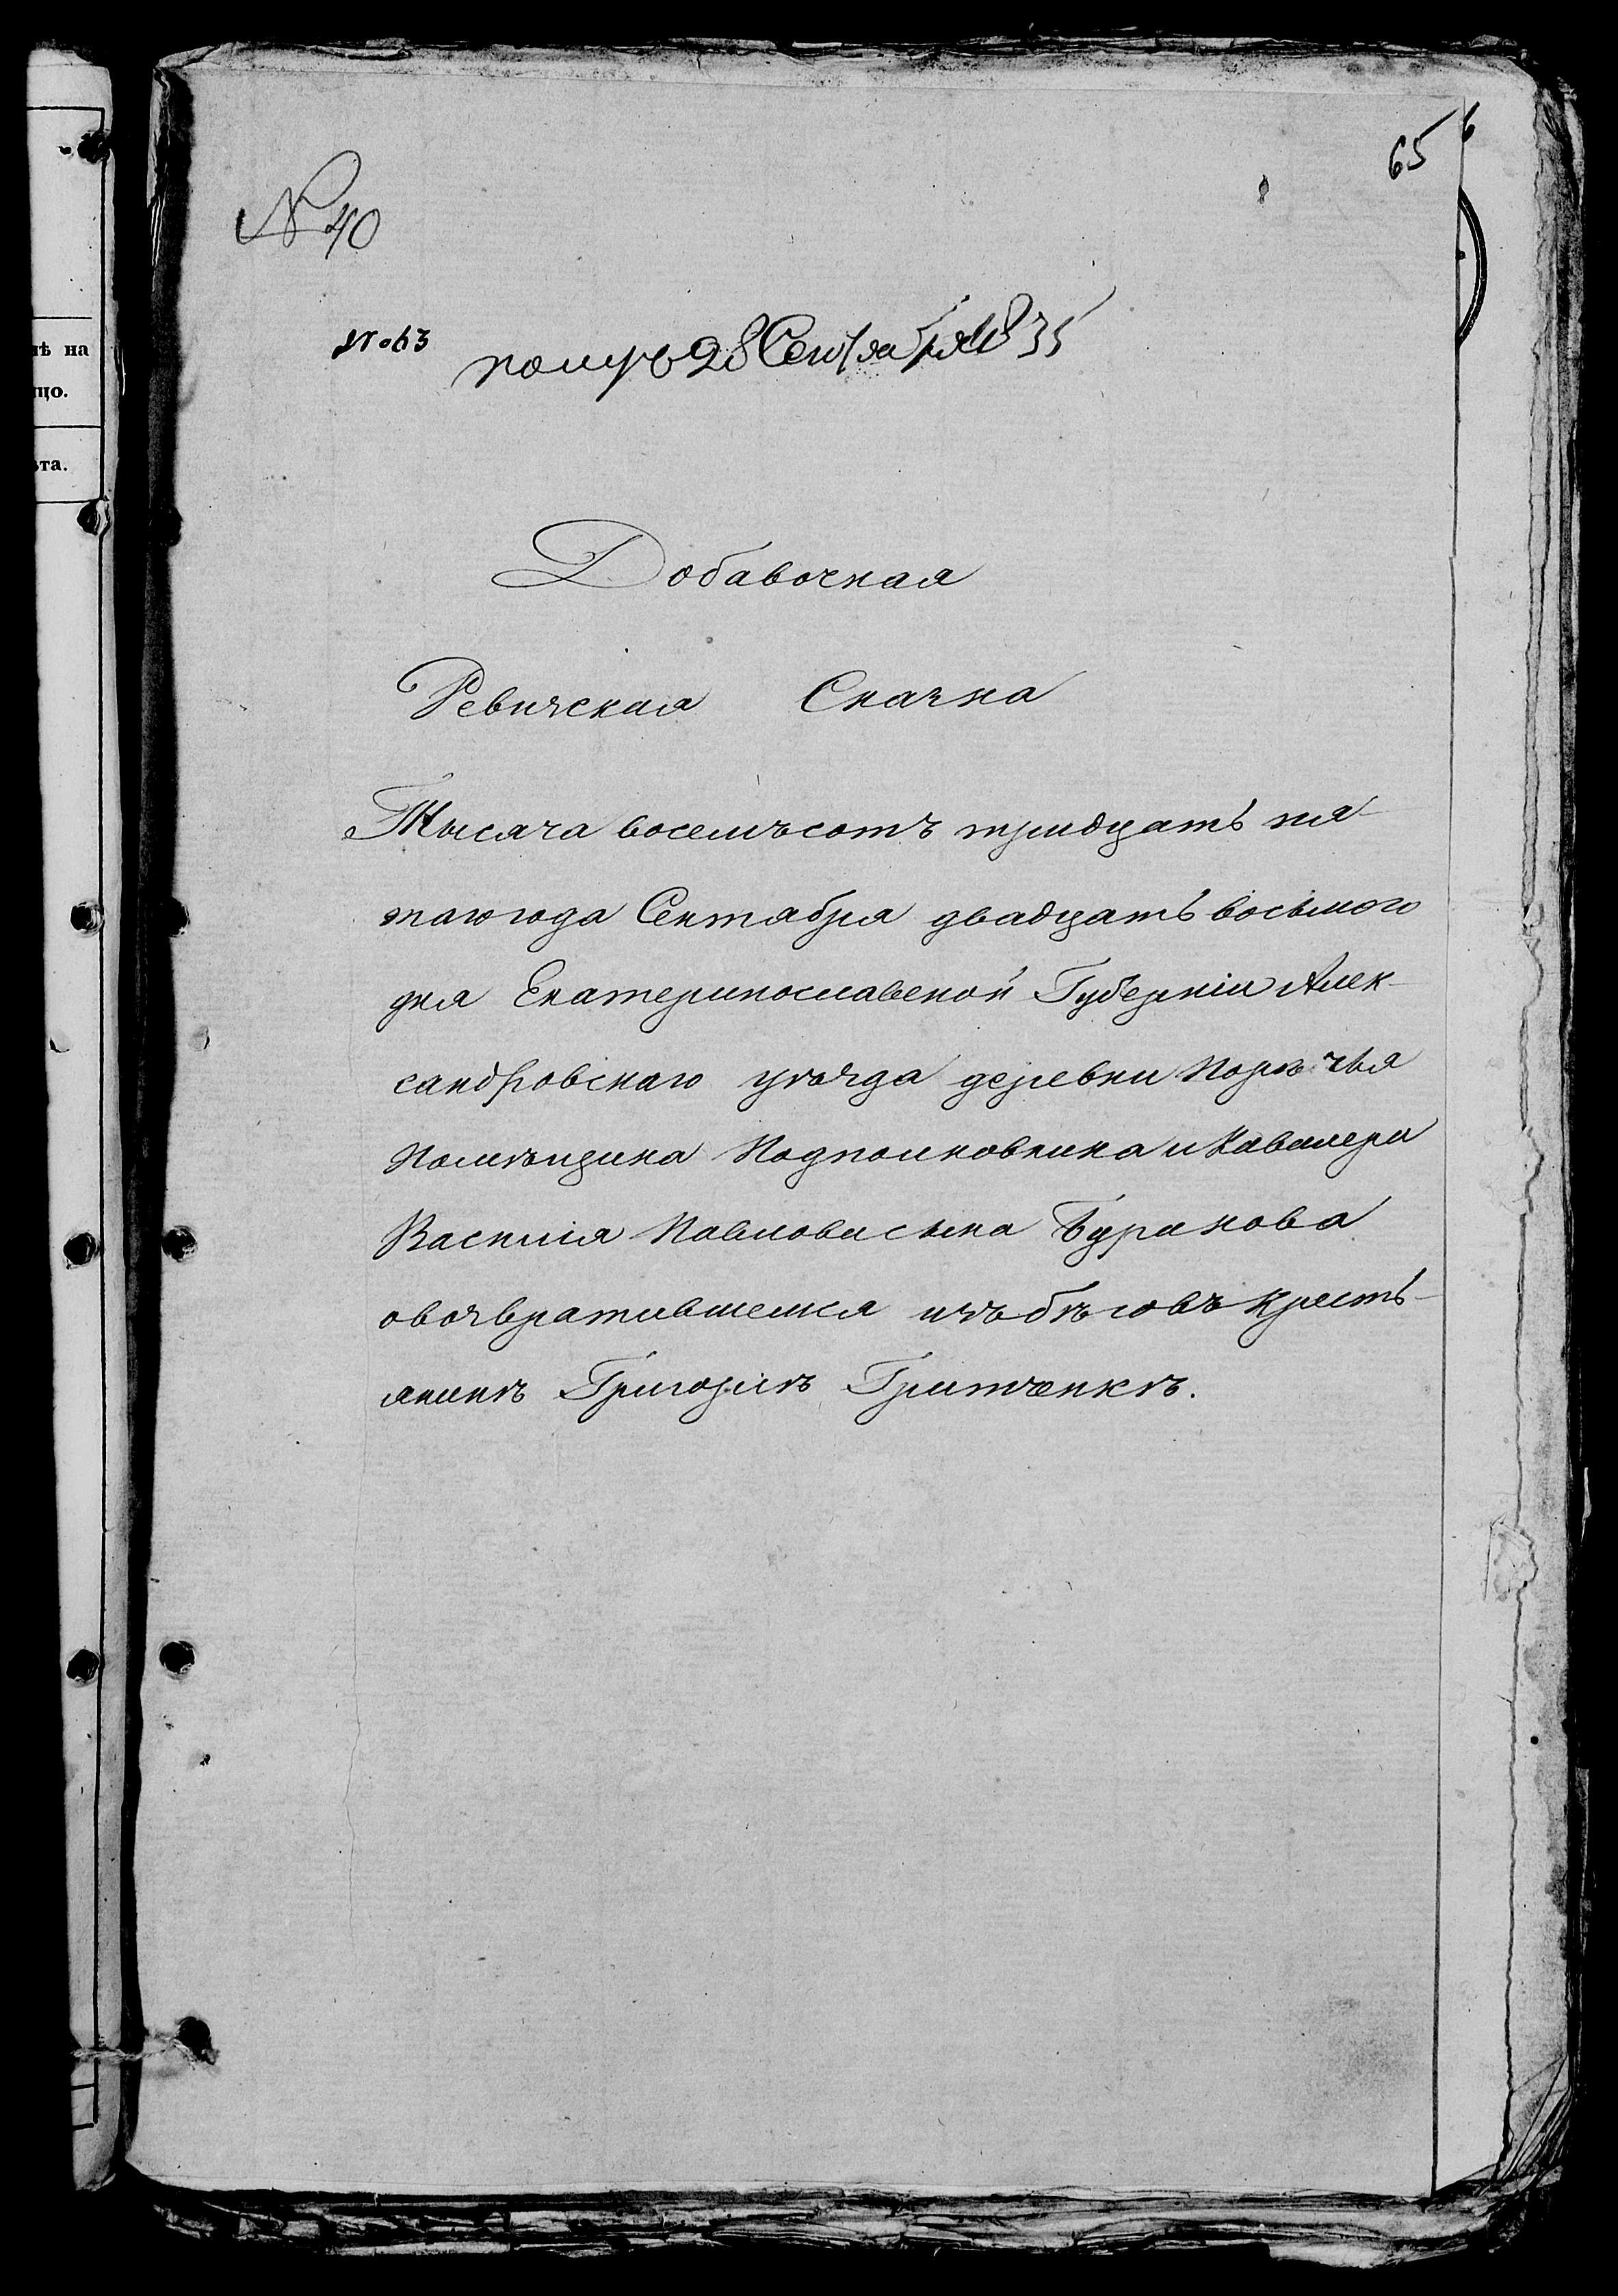 65
№ 40
№ 63
получ 28 Сентября 1835
Добавочная
Ревизская Сказка
Тысяча восемьсотъ тридцать пя-
таго года Сентября двадцать восьмого
дня Екатеринославской Губерніи Алек-
сандровскаго уѣзда деревни Порѣчья
Помѣщика Подполковника и Кавалера
Василія Павлова сына Буракова
овозвратившемся изъ бѣговъ кресть-
янинѣ Григоріѣ Гритченкѣ.
нѣ на
цо.
ѣта.